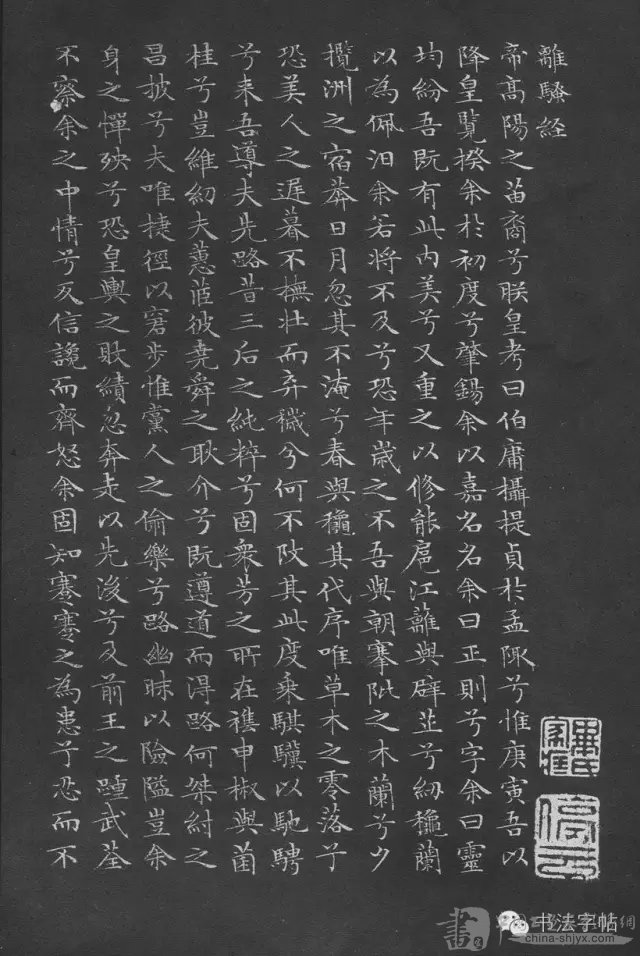 離騷経
帝高陽之苗裔兮朕皇考曰伯庸攝提貞於孟陬兮惟庚寅吾以
降皇覽揆余於初度兮肇錫余以嘉名名余曰正則兮字余曰靈
均紛吾既有此内美兮又重之以修能扈江蘺與辟芷兮紉龝蘭
以為佩汩余若將不及兮恐年歲之不吾與朝搴阰之木蘭兮夕
攬洲之宿莽日月忽其不淹兮春與龝其代序唯草木之零落兮
恐美人之遲暮不撫壯而弃穢兮何不改其此度乘騏驥以馳騁
兮来吾導夫先路昔三后之純粹兮固衆芳之所在雜申椒與菌
桂兮豈維紉夫蕙茝彼堯舜之耿介兮既遵道而得路何桀紂之
昌披兮夫唯捷徑以窘步惟黨人之偷樂兮路幽昧以險隘豈余
身之憚殃兮恐皇輿之敗績忽奔走以先後兮及前王之踵武荃
不察余之中情兮反信讒而齊怒余固知謇謇之為患兮忍而不
停云
書法字帖
china-shjyx.com